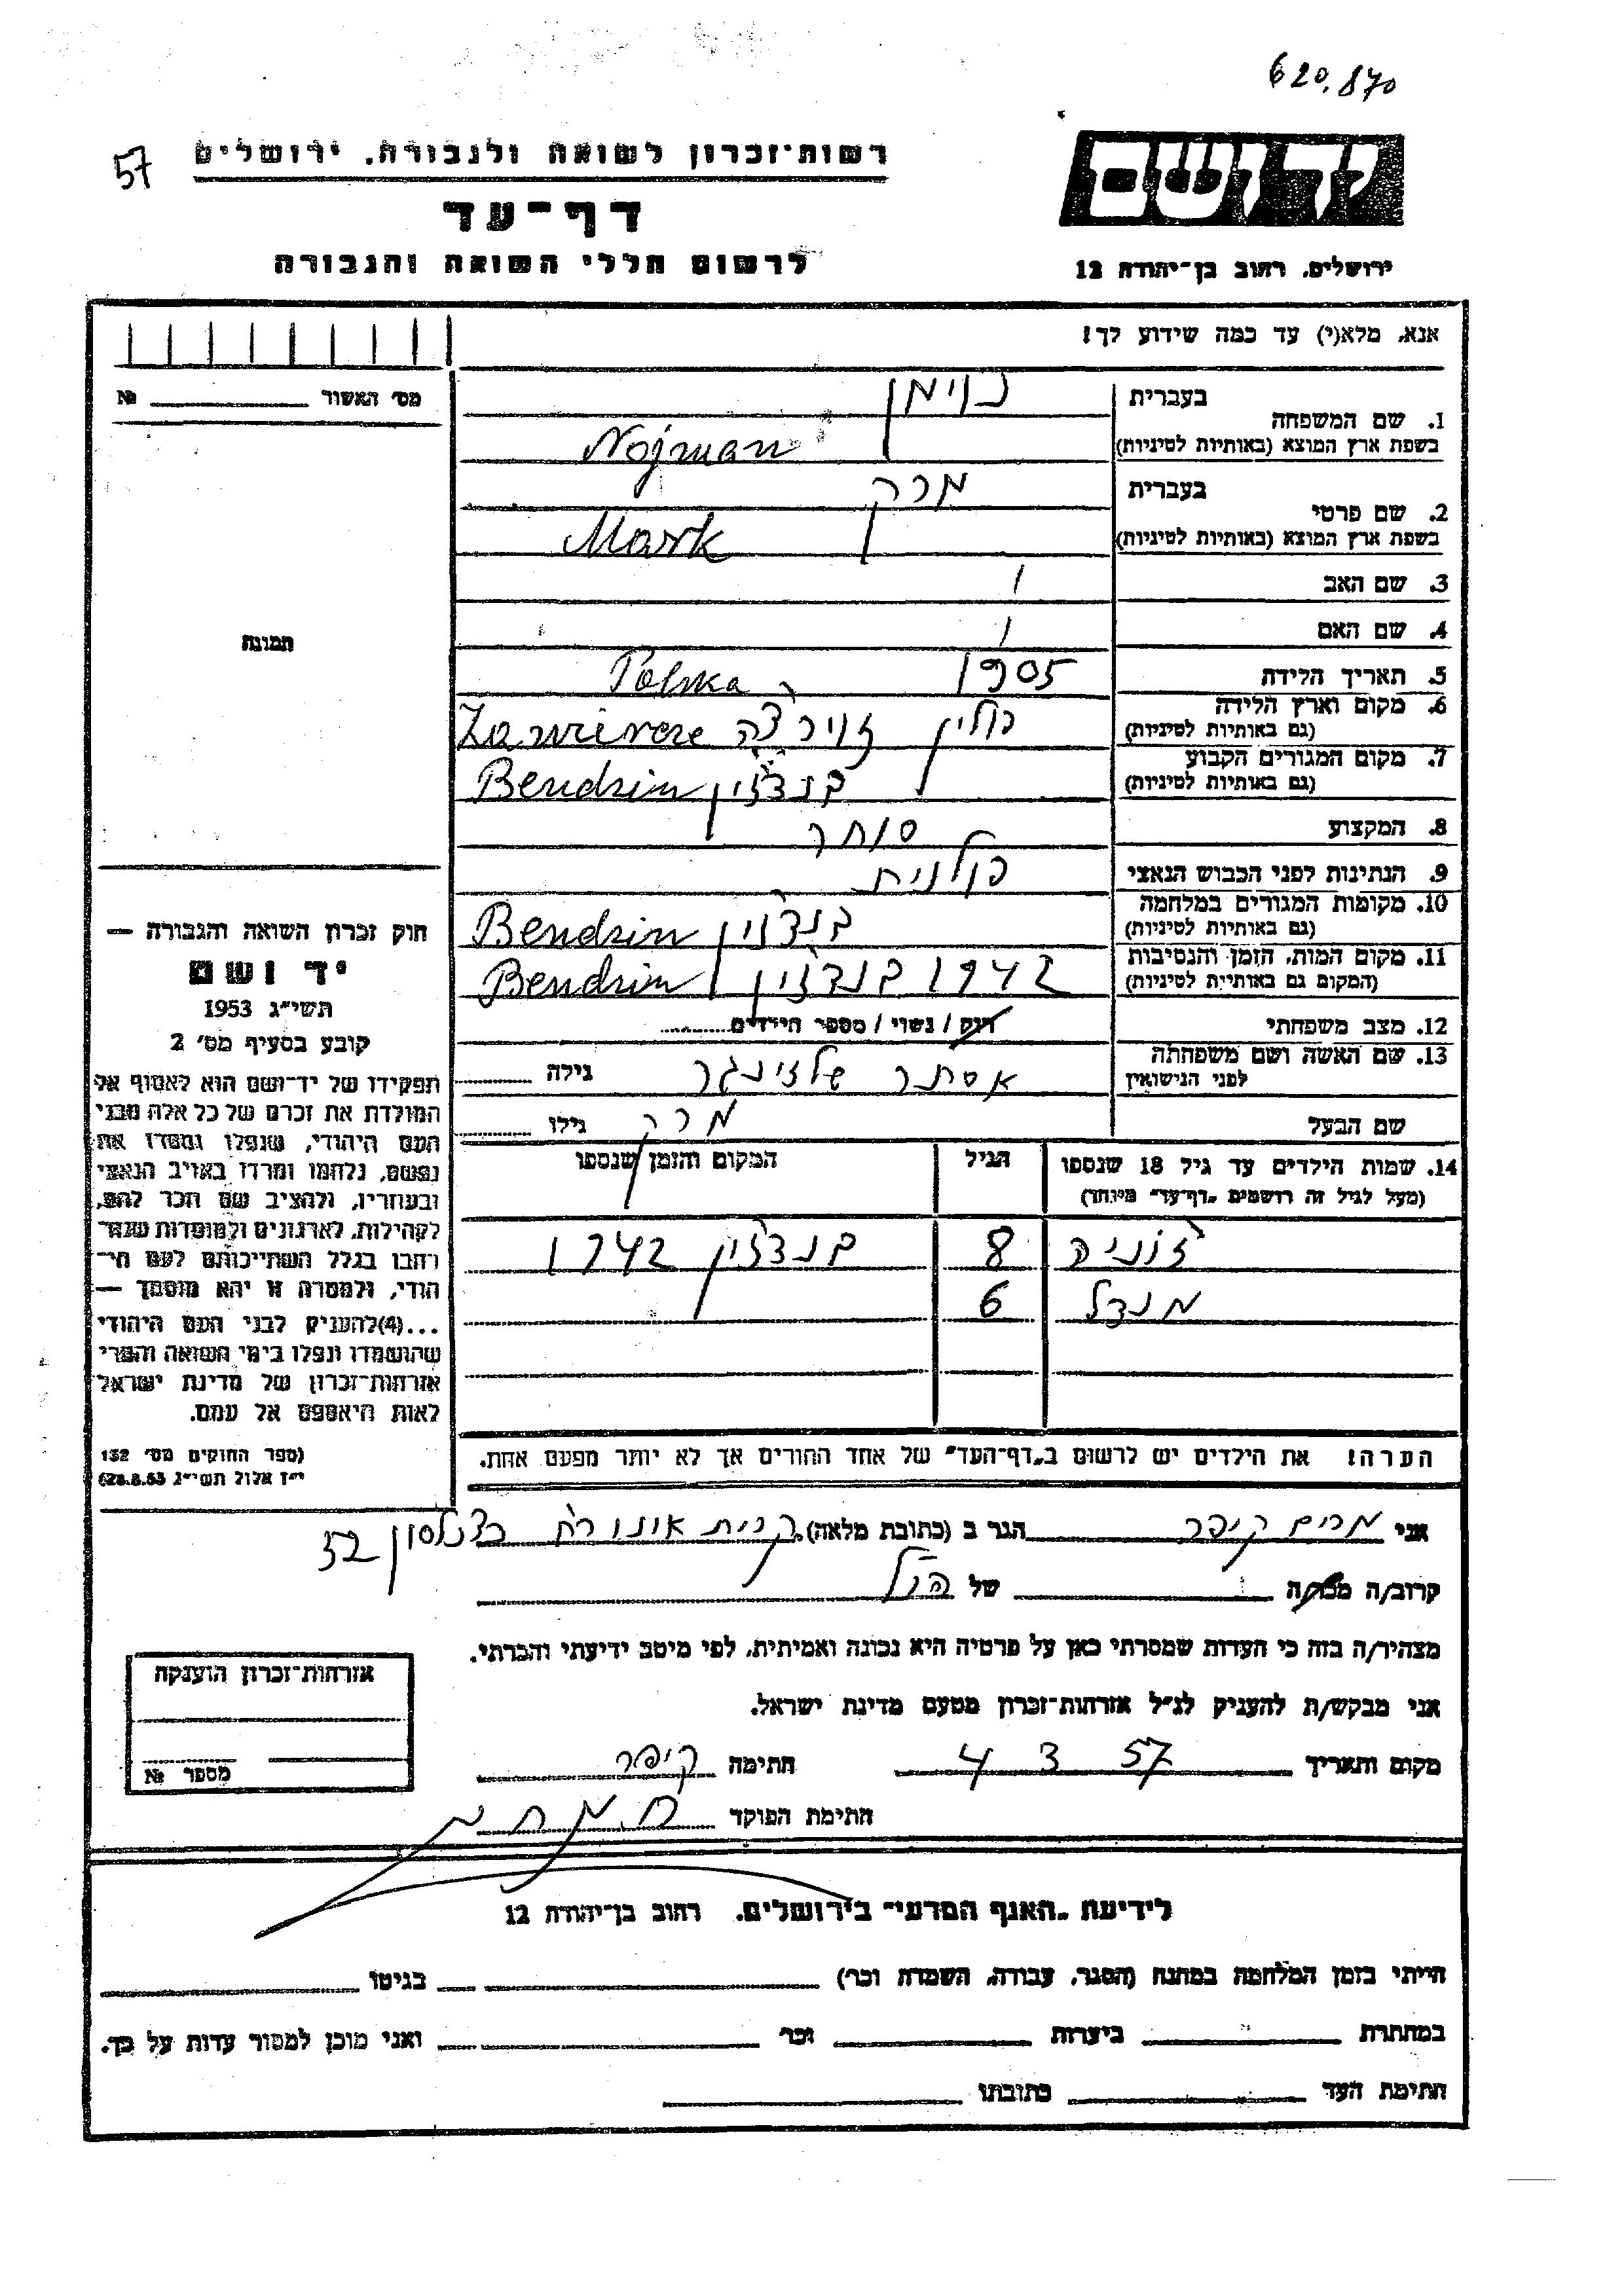 620.870
57
רשות-זכרון לשואה ולגבורה, ירושלים
יד ושם
דף-עד
לרשום חללי השואה והגבורה
ירושלים, רחוב בן-יהודה 12
אנא, מלא(י) עד כמה שידוע לך!
מס' האשור №
1. שם המשפחה
בעברית נוימן
בשפת ארץ המוצא (באותיות לטיניות) Nojman
2. שם פרטי
בעברית מרק
בשפת ארץ המוצא (באותיות לטיניות) Mark
3. שם האב /
4. שם האם /
תמונה
5. תאריך הלידה 1905 Polska
6. מקום וארץ הלידה (גם באותיות לטיניות) פולין זוירצה Zawirerce
7. מקום המגורים הקבוע (גם באותיות לטיניות) בנדזין Bendzin
8. המקצוע סוחר
9. הנתינות לפני הכבוש הנאצי פולנית
10. מקומות המגורים במלחמה (גם באותיות לטיניות) בנדזין Bendzin
11. מקום המות, הזמן והנסיבות (המקום גם באותיות לטיניות) 1942 בנדזין Bendzin
12. מצב משפחתי רווק / נשוי / מספר הילדים
13. שם האשה ושם משפחתה לפני הנישואין אסתר שלזינגר גילה
שם הבעל מרק גילו
14. שמות הילדים עד גיל 18 שנספו (מעל לגיל זה רושמים "דף-עד" מיוחד) הגיל המקום והזמן שנספו
זוניה 8 בנדזין 1942
מנדל 6
הערה! את הילדים יש לרשום ב"דף-העד" של אחד ההורים אך לא יותר מפעם אחת.
חוק זכרון השואה והגבורה —
יד ושם
תשי"ג 1953
קובע בסעיף מס' 2
תפקידו של יד-ושם הוא לאסוף אל
המולדת את זכרם של כל אלה מבני
העם היהודי, שנפלו ומסרו את
נפשם, נלחמו ומרדו באויב הנאצי
ובעוזריו, ולהציב שם וזכר להם,
לקהילות, לארגונים ולמוסדות שנח-
רחבו בגלל השתייכותם לעם הי-
הודי, ולמטרה זו יהא מוסמך —
...(4) להעניק לבני העם היהודי
שהושמדו ונפלו בימי השואה והמרי
אזרחות-זכרון של מדינת ישראל
לאות היאספם אל עמם.
(ספר החוקים מס' 132
י"ז אלול תשי"ג 28.8.53)
אני מרים קיפר הגר ב (כתובת מלאה) קרית אונו רח כצנלסון 52
קרוב/ה מכר/ה של הנ"ל
מצהיר/ה בזה כי העדות שמסרתי כאן על פרטיה היא נכונה ואמיתית, לפי מיטב ידיעתי והכרתי.
אני מבקש/ת להעניק לנ"ל אזרחות-זכרון מטעם מדינת ישראל.
מקום ותאריך 4 3 57 חתימה קיפר
חתימת הפוקד
אזרחות-זכרון הוענקה
מספר №
לידיעת "האגף המדעי" בירושלים, רחוב בן-יהודה 12
הייתי בזמן המלחמה במחנה (הסגר, עבודה, השמדה וכו') בגיטו
במחתרת ביערות וכו' ואני מוכן למסור עדות על כך.
חתימת העד כתובתו